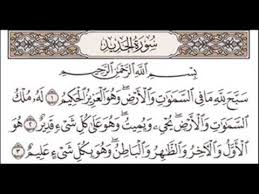 سورة الحديد
بِسْمِ اللَّهِ الرَّحْمَٰنِ الرَّحِيمِ
سَبَّحَ لِلَّهِ مَا فِي السَّمَٰوَٰتِ وَالْأَرْضِ ۖ وَهُوَ الْعَزِيزُ الْحَكِيمُ ١ لَهُ مُلْكُ
السَّمَٰوَٰتِ وَالْأَرْضِ ۖ يُحْيِي وَيُمِيتُ ۖ وَهُوَ عَلَىٰ كُلِّ شَيْءٍ قَدِيرٌ ٢ هُوَ
الْأَوَّلُ وَالْآخِرُ وَالظَّٰهِرُ وَالْبَاطِنُ ۖ وَهُوَ بِكُلِّ شَيْءٍ عَلِيمٌ ٣